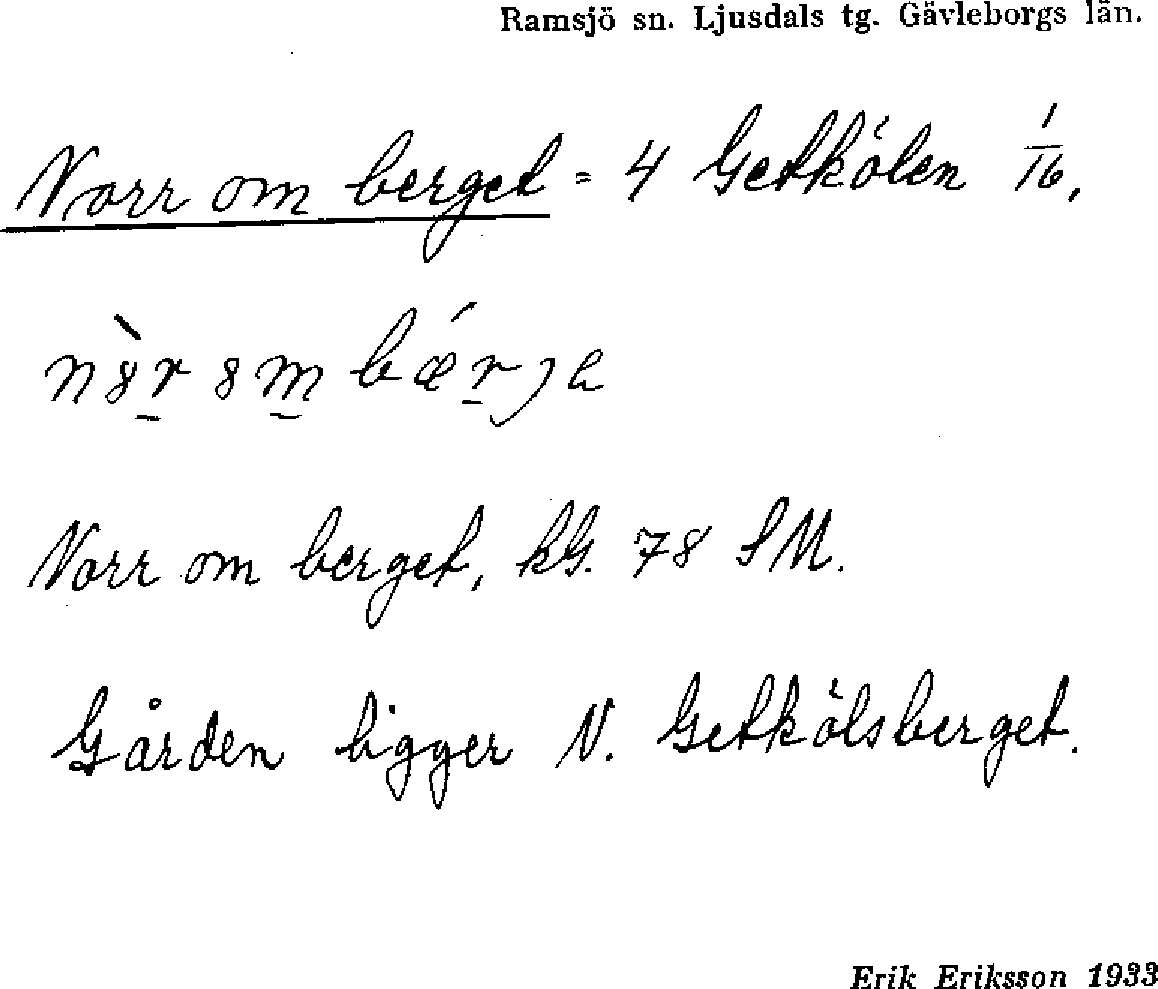 Ramsjö sn. Ljusdals tg. Gävleborgs län.
Norr om berget = 4 Getkölen 1/16,
nò̀r̲ 8m̲ bǽr̲ȷa
Norr om berget, kG. 78 SM.
Gården ligger N. Getkölsberget.
Erik Eriksson 1933